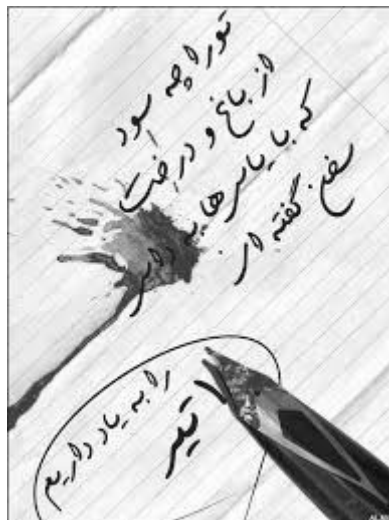 تو را چه سود
از باغ و درخت
که با یاس ها به داس
سخن گفته ای
تیر
را به یاد داریم